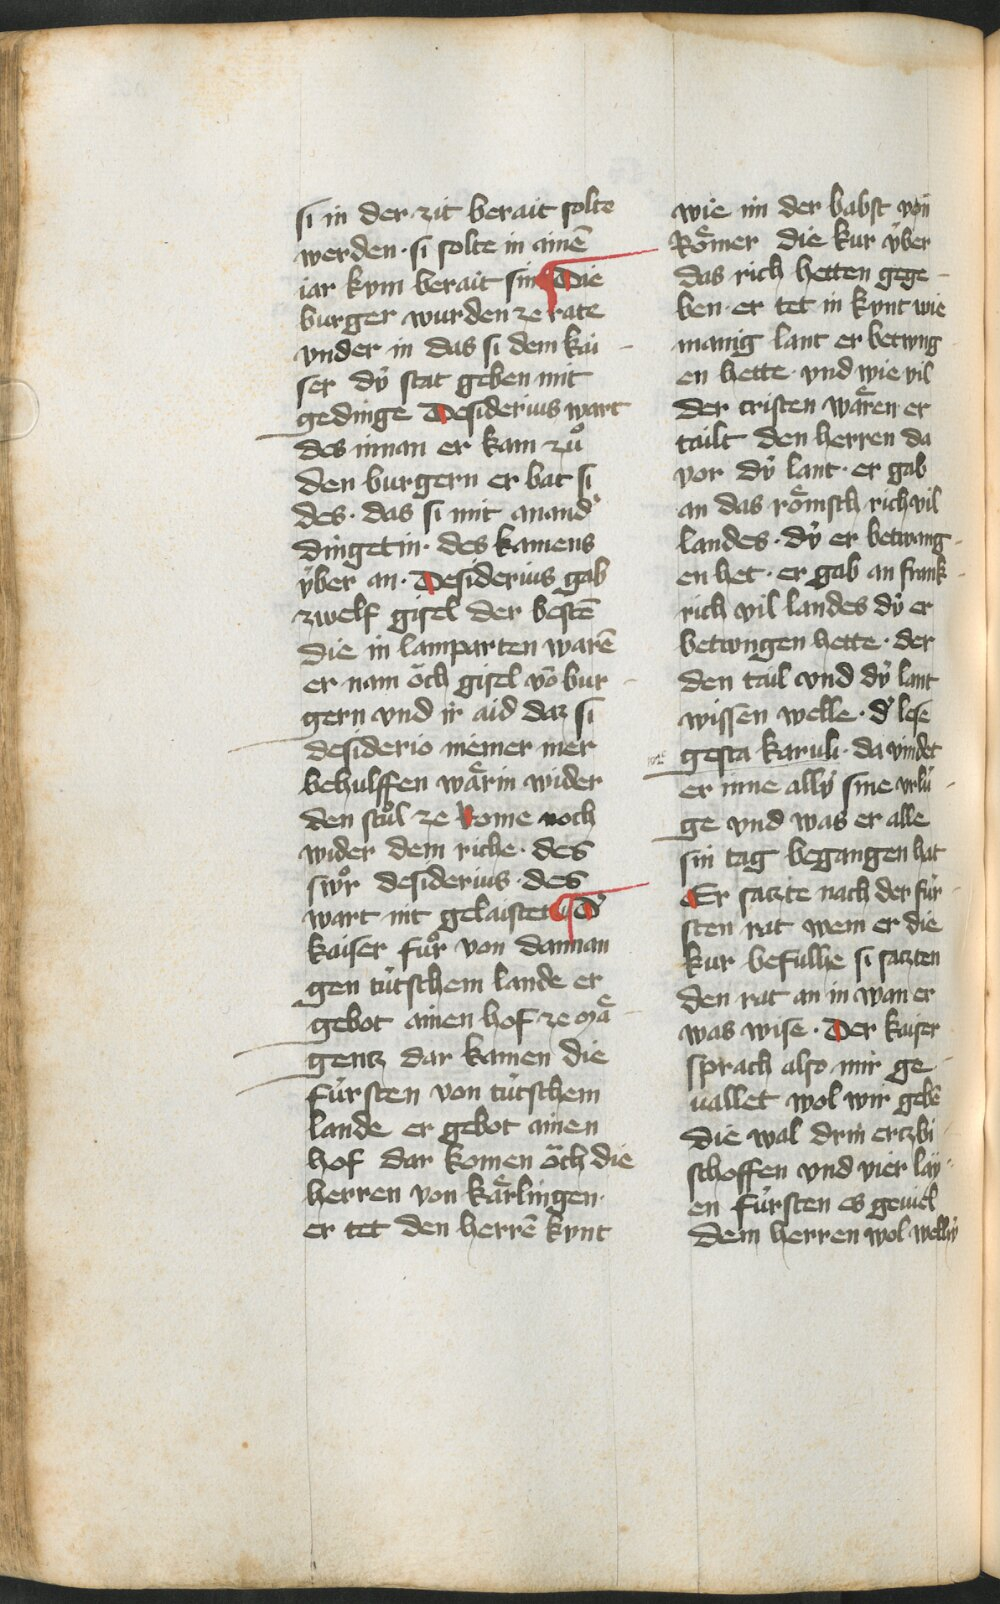 si in der zit berait solte
werden · si solte in ainē
iar kym berait sin ¶ Die
burger wurden ze rate
vnder in das si dem kai
ser dÿ stat geben mit
gedinge Desiderius wart
des innan er kam zů
den burgern er bat si
des · das si mit anand
dingetin · des kamens
ÿber an · Desiderius gab
zwelf gisel der bestē
die in lamparten warē
er nam ǒch gisel vō bur
gern vnd ir aid daz si
desiderio niemer mer
behulffen wärin wider
den stůl ze Rome noch
wider dem riche · des
swůr desiderius · des
wart nit gelaistet ¶ D
kaiser fůr von dannan
gen tútschem lande er
gebot ainen hof ze mä
gentz dar kamen die
fúrsten von tútschem
lande er gebot ainen
hof dar komen ǒch die
herren von kärlingen ·
er tet den herrē kynt
wie im der babst von
Römer die kur ÿber
das rich hetten gege
ben · er tet in kynt wie
manig lant er betwng
en hette · vnd wie vil
der cristen wären er
tailt den herren da
vor dÿ lant · er gab
an das römsch rich vil
landes · dÿ er betwang
en het · er gab an frank
rich vil landes dÿ er
betwngen hette · der
den tail vnd dÿ lant
wissen welle · d lese
gesta karuli · da vindet
er inne allÿ sine vrlú
ge vnd was er alle
sin tag begangen hat
Er satzte nach der fúr
sten rat wem er die
kur befulhe si satzten
den rat an in wan er
was wise · Der kaiser
sprach also mir ge
uallet wol wir gebē
die wal drin ertzbi
schoffen vnd vier lay
en fúrsten es geuiel
dem herren wol · wellÿ